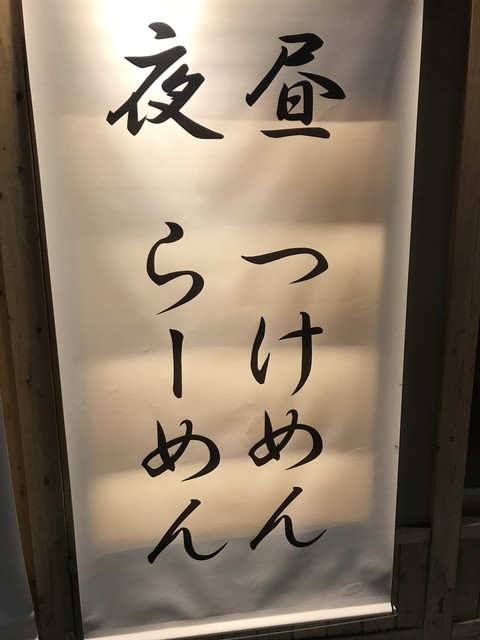 昼 つけめん
夜 らーめん